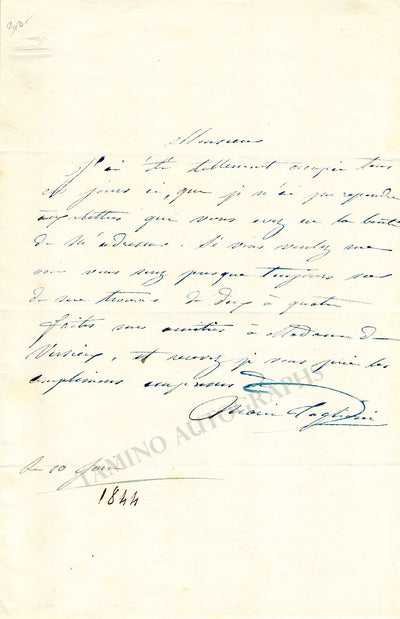 Monsieur
J'ai été tellement occupée tous
ces jours ci, que je n'ai pu repondre
aux lettres que vous avez eu la bonté
de m'adresser. Si vous voulez me
voir vous serez presque toujours sur
de me trouver de deux à quatre
faites mes amitiés à Madame de
et recevez je vous prie les
complimens empressés de
Marie Taglioni
Le 10
1844
TAMINO AUTOGRAPHS